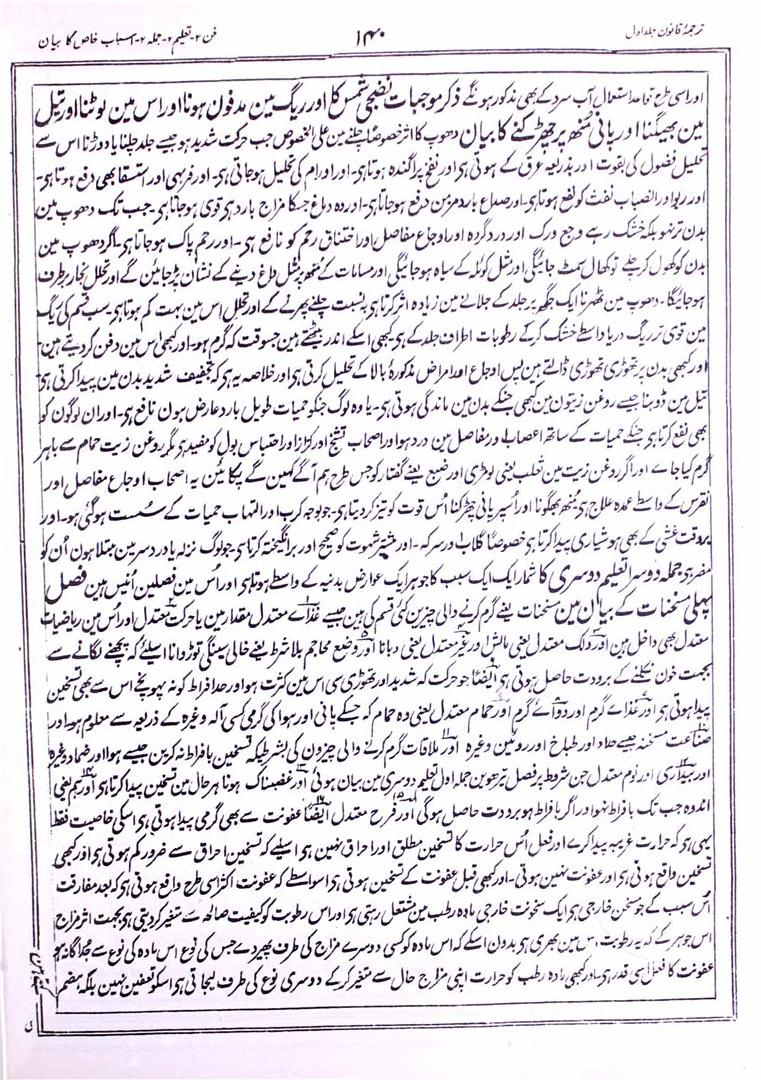 ترجمۂ قانون جلد اول ۱۴۰ فن ۲۔ تعلیم ۲۔ جملہ ۲۔ اسباب خاص کا بیان
اور اسی طرح قواعد استعمال آب سرد کے بھی مذکور ہونگے ذکر موجبات تضحی شمس کا اور ریگ مین مدفون ہونا اور اس مین لوٹنا اور تیل
مین بھیگنا اور پانی منھ پر چھڑکنے کا بیان دھوپ کا اثر خصوصاً چلنے مین علی الخصوص جب حرکت شدید ہو جیسے جلد چلنا یا دوڑنا اس سے
تحلیل فضول کی بقوت اور بذریعہ عرق کے ہوتی ہی اور نفخ پراگندہ ہوتا ہی۔ اور اورام کی تحلیل ہو جاتی ہی۔ اور فربہی اور استسقا بھی دفع ہوتا ہی۔
اور ربو اور انتصاب نفث کو نفع ہوتا ہی۔ اور صداع بارد مزمن دفع ہو جاتا ہی۔ اور وہ دماغ جسکا مزاج بارد ہی قوی ہو جاتا ہی۔ جب تک دھوپ مین
بدن تر نہو بلکہ خشک رہے وجع ورک اور درد گردہ اور اوجاع مفاصل اور اختناق رحم کو نافع ہی۔ اور رحم پاک ہو جاتا ہی۔ اگر دھوپ مین
بدن کو کھول کر چلے تو کھال سمٹ جائیگی اور مثل کوئلہ کے سیاہ ہو جائیگی اور مسامات کے منھ پر مثل داغ دینے کے نشان پڑ جائین گے اور تحلل بخار برطرف
ہو جائیگا۔ دھوپ مین ٹھرنا ایک جگہ پر جلد کے جلانے مین زیادہ اثر کرتا ہی بنسبت چلنے پھرنے کے اور تحلل اس مین بہت کم ہوتا ہی۔ سب قسم کی ریگ
مین قوی تر ریگ دریا واسطے خشک کرنے رطوبات اطراف جلد کے ہی کبھی اسکے اندر بیٹھتے ہین جسوقت کہ گرم ہو۔ اور کبھی اس مین دفن کر دیتے ہین۔
اور کبھی بدن پر تھوڑی تھوڑی ڈالتے ہین پس اوجاع اور امراض مذکورۂ بالا کے تحلیل کرتی ہی اور خلاصہ یہ ہی کہ تجفیف شدید بدن مین پیدا کرتی ہی
تیل مین ڈوبنا جیسے روغن زیتون مین کبھی جنکے بدن مین ماندگی ہوتی ہی۔ یا وہ لوگ جنکو حمیات طویل بارد عارض ہون نافع ہی۔ اور ان لوگون کو
بھی نفع کرتا ہی جنکے حمیات کے ساتھ اعصاب اور مفاصل مین درد ہو اور اصحاب تشنج اور کزاز اور احتباس بول کو مفید ہی مگر روغن زیت حمام سے باہر
گرم کیا جائے اور اگر روغن زیت مین ثعلب یعنی لومڑی اور ضبع یعنے گفتار کو جس طرح ہم آگے کہین گے پکائین یہ اصحاب اوجاع مفاصل اور
نقرس کے واسطے عمدہ علاج ہی منھ بھگونا اور اسپر پانی چھڑکنا اس قوت کو تیز کر دیتا ہی۔ جو بوجہ کرب اور التہاب حمیات کے سست ہو گئی ہو۔ اور
بروقت غشی کے بھی ہوشیاری پیدا کرتا ہی خصوصاً گلاب اور سرکہ۔ اور بیشتر شہوت کو صحیح اور برانگیختہ کرتا ہی۔ جو لوگ نزلہ یا درد سر مین مبتلا ہون ان کو
مضر ہی۔ جملہ دوسرا تعلیم دوسری کا شمار ایک ایک سبب کا جو ہر ایک عوارض بدنیہ کے واسطے ہوتا ہی اور اس مین فصلین انیس ہین فصل
پہلی مسخنات کے بیان مین مسخنات یعنے گرم کرنے والی چیزین کئی قسم کی ہین جیسے غذائے معتدل مقدار مین یا حرکت معتدل اور اس مین ریاضیات
معتدل بھی داخل ہین اور دلک معتدل یعنی مالش اور غمز معتدل یعنی دبانا اور وضع محاجم بلا شرط یعنے خالی سینگی توڑوانا اسلیے کہ پچھنے لگانے سے
بجہت خون نکلنے کے برودت حاصل ہوتی ہی ایضاً جو حرکت کہ شدید اور تھوڑی سی اس مین کثرت ہو اور حد افراط کو نہ پہونچے اس سے بھی تسخین
پیدا ہوتی ہی اور غذائے گرم اور دوائے گرم اور حمام معتدل یعنی وہ حمام کہ جسکے پانی اور ہوا کی گرمی کسی آلہ وغیرہ کے ذریعہ سے معلوم ہو اور
صناعت مسخنہ جیسے حداد اور طباخ وغیرہ اور ملاقات گرم کرنے والی چیزون کی بشرطیکہ تسخین بافراط نہ کرین جیسے ہوا اور ضماد وغیرہ
اور بیداری اور نوم معتدل جن شروط پر فصل تیرھوین جملہ اول تعلیم دوسری مین بیان ہوئی اور غضبناک ہونا ہر حال مین تسخین پیدا کرتا ہی اور ہم یعنی
اندوہ جب تک بافراط نہو اور اگر بافراط ہو برودت حاصل ہوگی اور فرح معتدل ایضاً عفونت سے بھی گرمی پیدا ہوتی ہی اسکی خاصیت فقط
یہی ہی کہ حرارت غریبہ پیدا کرے اور فعل اس حرارت کا تسخین مطلق اور احراق نہین ہی اسلیے کہ تسخین احراق سے ضرور کم ہوتی ہی اور کبھی
تسخین واقع ہوتی ہی اور عفونت نہین ہوتی۔ اور کبھی قبل عفونت کے تسخین ہوتی ہی اسواسطے کہ عفونت اکثر اسی طرح واقع ہوتی ہی کہ بعد مفارقت
اس سبب کے جو مسخن خارجی ہی ایک سخونت خارجی مادہ رطب مین مشتعل رہتی ہی اور اس رطوبت کو کیفیت صالحہ سے متغیر کر دیتی ہی بجہت اثر مزاج
اس جوہر کے کہ یہ رطوبت اس مین بھری ہی بدون اسکے کہ اس مادہ کو کسی دوسرے مزاج کی طرف پھیر دے جس کی نوع اس مادہ کی نوع سے جداگانہ ہو
عفونت کا فعل اسی قدر ہی۔ اور کبھی مادہ رطب کو حرارت اپنی مزاج حال سے متغیر کرکے دوسری نوع کی طرف لیجاتی ہی اسکو تعفین نہین بلکہ ہضم